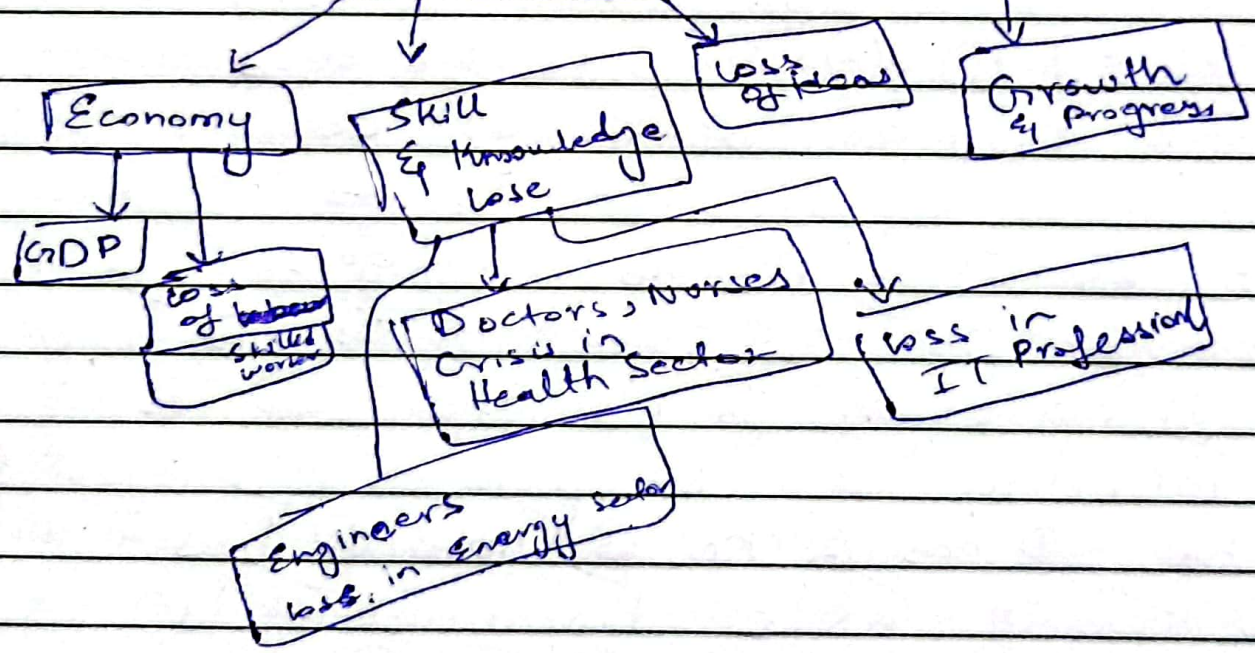 Economy
Skill
& Knowledge
Lose
Loss
of ideas
Growth
& Progress
GDP
Loss
of
Skilled
worker
Doctors, Nurses
Crisis in
Health Sector
Loss in
IT Profession
Engineers
loss in Energy Sector